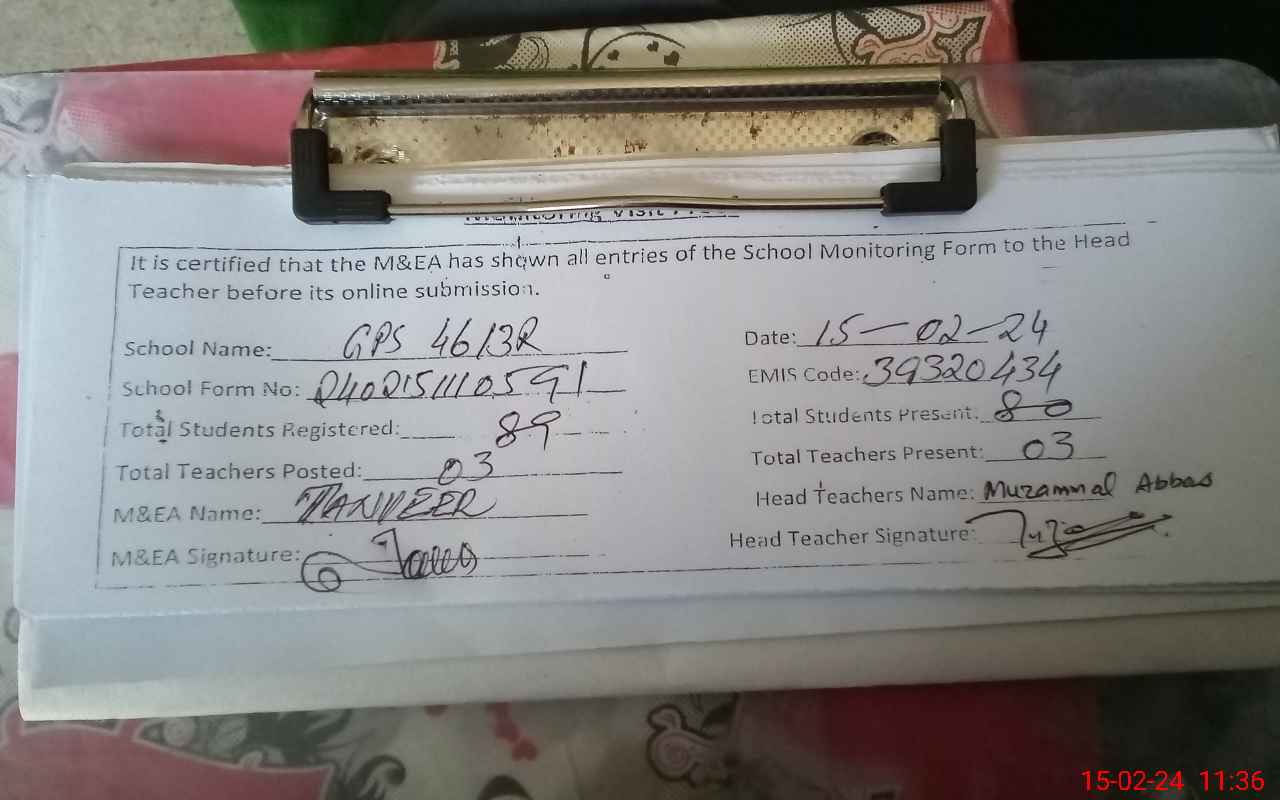 Monitoring Visit
It is certified that the M&EA has shown all entries of the School Monitoring Form to the Head
Teacher before its online submission.
School Name: GPS 46/3R Date: 15-02-24
School Form No: 2402151110591 EMIS Code: 39320434
Total Students Registered: 89 Total Students Present: 80
Total Teachers Posted: 03 Total Teachers Present: 03
M&EA Name: TANVEER Head Teachers Name: Muzammal Abbas
M&EA Signature: Head Teacher Signature:
15-02-24 11:36